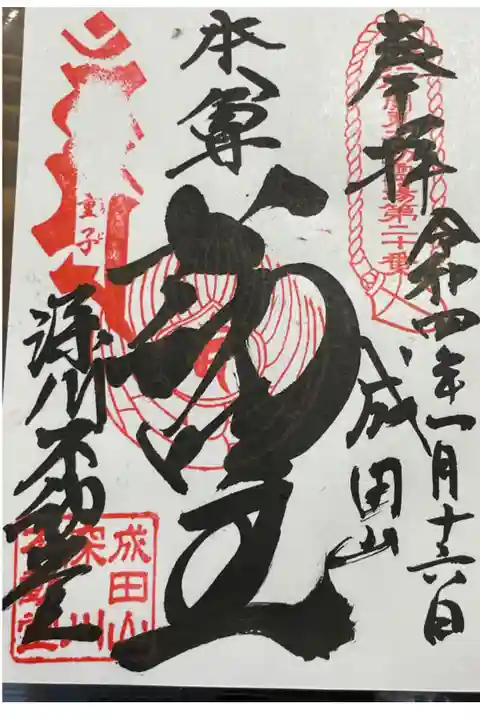 奉拝
霊場第二十番
令和四年一月十六日
成田山
本尊
童子
深川不動堂
成田山
深川
不動堂